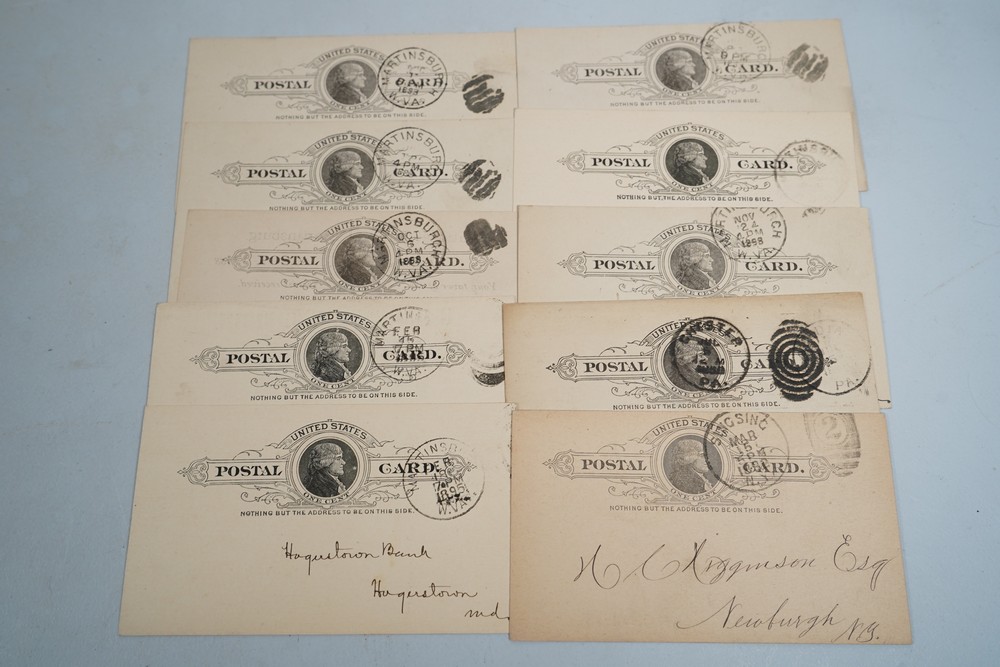 UNITED STATES
POSTAL CARD.
ONE CENT
NOTHING BUT THE ADDRESS TO BE ON THIS SIDE.
MARTINSBURGH
W.VA.
UNITED STATES
POSTAL CARD.
ONE CENT
NOTHING BUT THE ADDRESS TO BE ON THIS SIDE.
MARTINSBURGH
8 PM
UNITED STATES
POSTAL CARD.
ONE CENT
NOTHING BUT THE ADDRESS TO BE ON THIS SIDE.
MARTINSBURGH
4 PM
W.VA.
UNITED STATES
POSTAL CARD.
ONE CENT
NOTHING BUT THE ADDRESS TO BE ON THIS SIDE.
UNITED STATES
POSTAL CARD.
ONE CENT
NOTHING BUT THE ADDRESS TO BE ON THIS SIDE.
MARTINSBURGH
OCT
6
4 PM
W.VA.
UNITED STATES
POSTAL CARD.
ONE CENT
NOTHING BUT THE ADDRESS TO BE ON THIS SIDE.
NOV
24
4 PM
W.VA.
UNITED STATES
POSTAL CARD.
ONE CENT
NOTHING BUT THE ADDRESS TO BE ON THIS SIDE.
MARTINS
FEB
W.VA.
UNITED STATES
POSTAL CARD.
ONE CENT
NOTHING BUT THE ADDRESS TO BE ON THIS SIDE.
CHESTER
PA.
PA.
UNITED STATES
POSTAL CARD.
ONE CENT
NOTHING BUT THE ADDRESS TO BE ON THIS SIDE.
MARTINSBU
W.VA.
Hagerstown Bank
Hagerstown
md.
UNITED STATES
POSTAL CARD.
ONE CENT
NOTHING BUT THE ADDRESS TO BE ON THIS SIDE.
SINGSING
MAR
PM
N.Y.
2
Higginson Esq
Newburgh
N.Y.